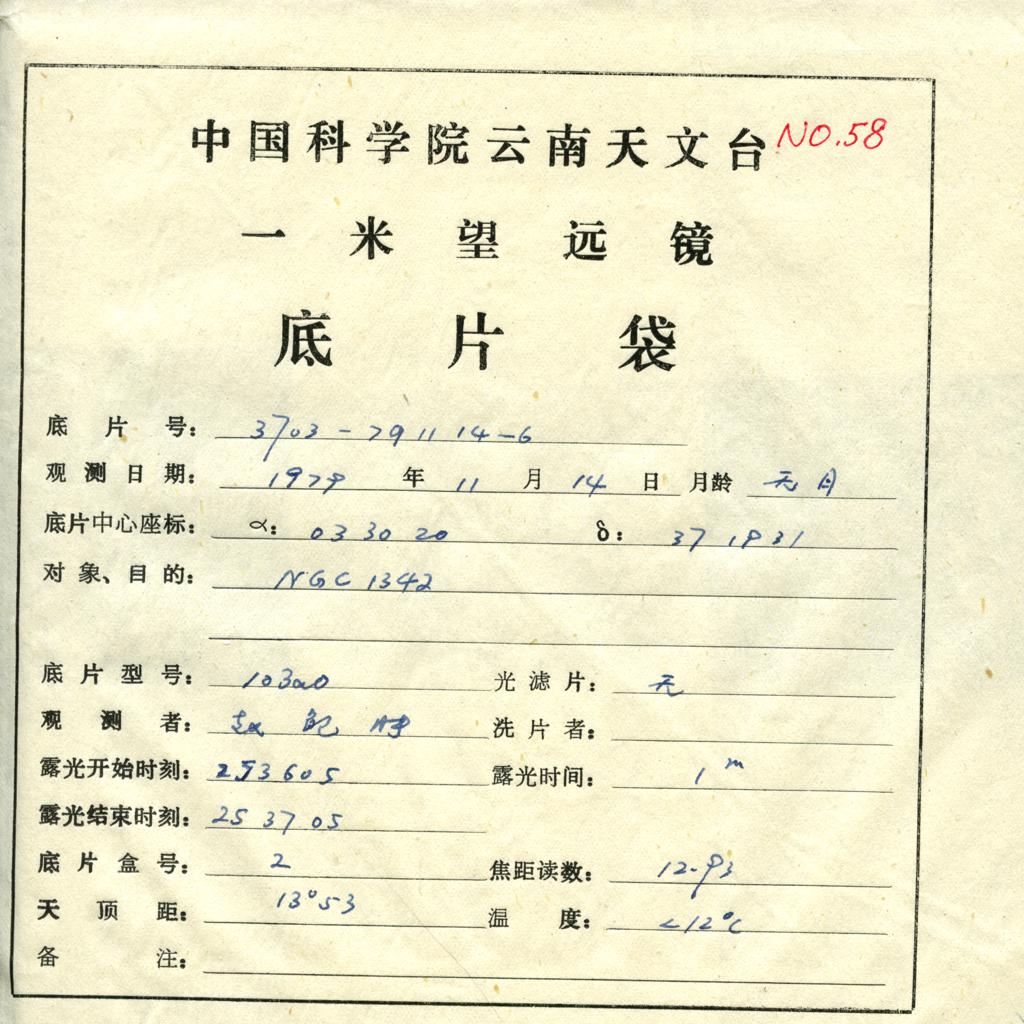 中国科学院云南天文台 NO.58
一米望远镜
底片袋
底片号: 3703-791114-6
观测日期: 1979 年 11 月 14 日 月龄 无月
底片中心座标: α: 03 30 20 δ: 37 19 31
对象、目的: NGC 1342
底片型号: 103aO 光滤片: 无
观测者: 洗片者:
露光开始时刻: 253605 露光时间: 1m
露光结束时刻: 25 37 05
底片盒号: 2 焦距读数: 12.93
天顶距: 13°53 温度: <12°C
备注: